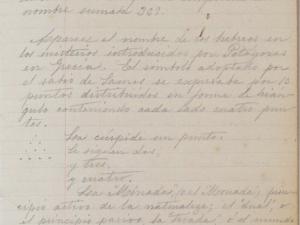 nombre sumaba 329.
Aparece el nombre de los hebreos en
los misterios introducidos por Pitágoras
en Grecia. El símbolo adoptado por
el sabio de Samos se expresaba por 10
puntos distribuidos en forma de trián-
gulo conteniendo cada lado cuatro pun-
tos.
Sea cúspide un punto:
le siguen dos,
y tres,
y cuatro.
Sea "Moinada", ó el "Monada", prin-
cipio activo de la naturaleza; el "dual", ó
el principio pasivo, la "triada", ó el mundo